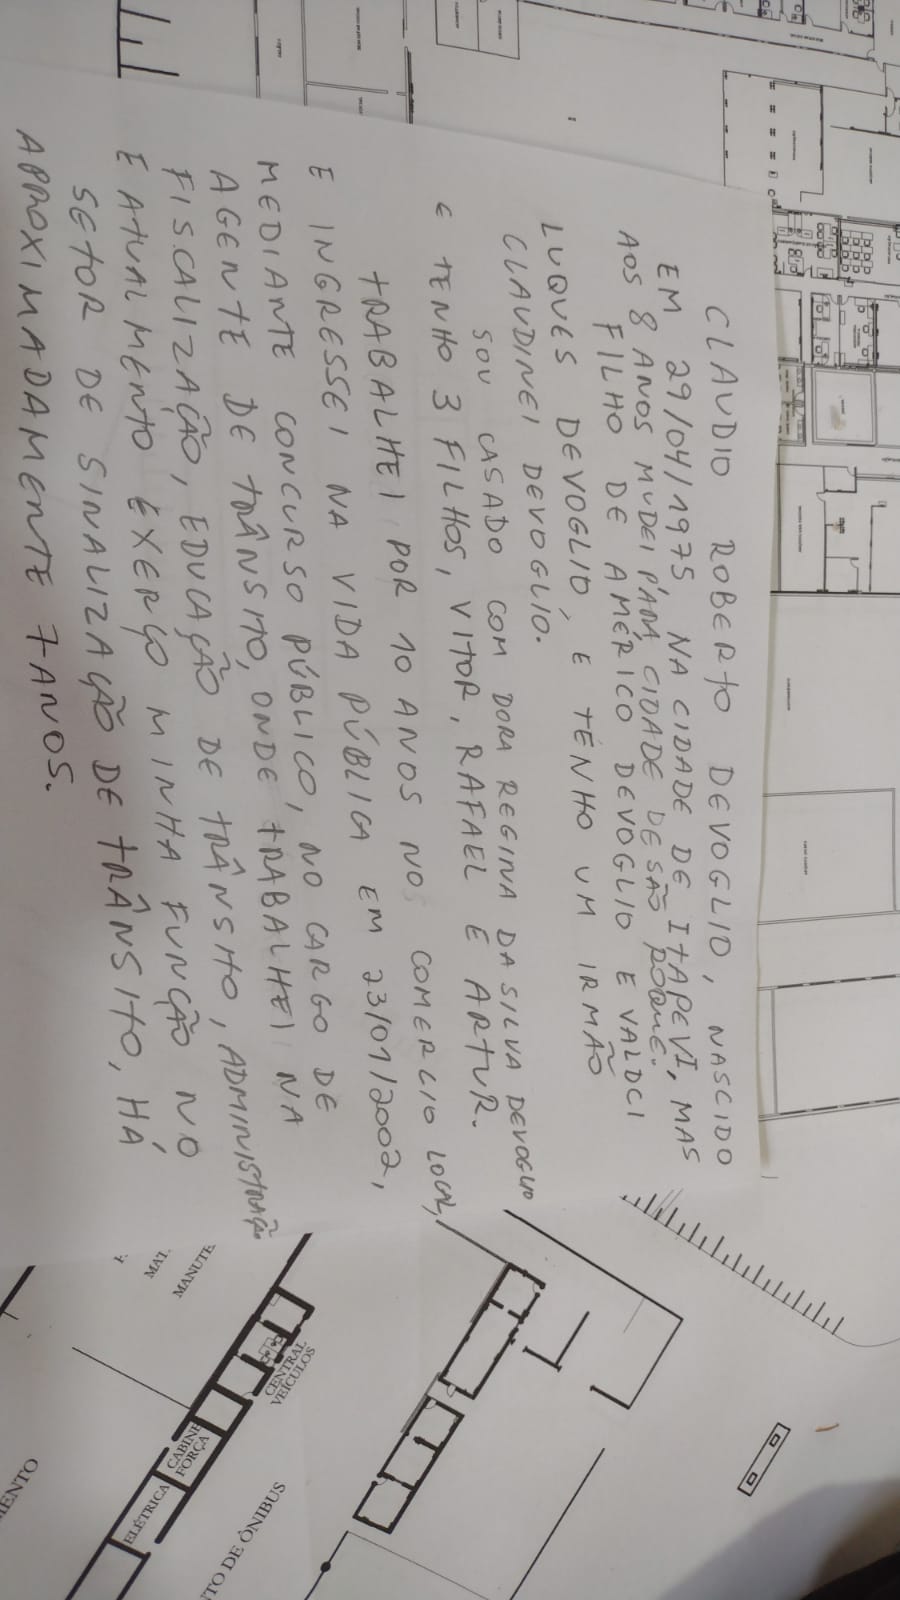 CLAUDIO ROBERTO DEVOGLIO, NASCIDO
EM 29/04/1975, NA CIDADE DE ITAPEVI, MAS
AOS 8 ANOS MUDEI PARA CIDADE DE SÃO ROQUE.
FILHO DE AMÉRICO DEVOGLIO E VALDCI
LUQUES DEVOGLIO E TENHO UM IRMÃO
CLAUDINEI DEVOGLIO.
SOU CASADO COM DORA REGINA DA SILVA DEVOGLIO
E TENHO 3 FILHOS, VITOR, RAFAEL E ARTUR.
TRABALHEI POR 10 ANOS NO COMERCIO LOCAL,
E INGRESSEI NA VIDA PÚBLICA EM 23/01/2002,
MEDIANTE CONCURSO PÚBLICO, NO CARGO DE
AGENTE DE TRÂNSITO, ONDE TRABALHEI NA
FISCALIZAÇÃO, EDUCAÇÃO DE TRÂNSITO, ADMINISTRAÇÃO
E ATUALMENTO EXERÇO MINHA FUNÇÃO NO
SETOR DE SINALIZAÇÃO DE TRÂNSITO, HÁ
APROXIMADAMENTE 7 ANOS.
MAT.
MANUTE
CENTRAL
VEÍCULOS
CABINE
FORÇA
ELÉTRICA
MENTO
TO DE ÔNIBUS